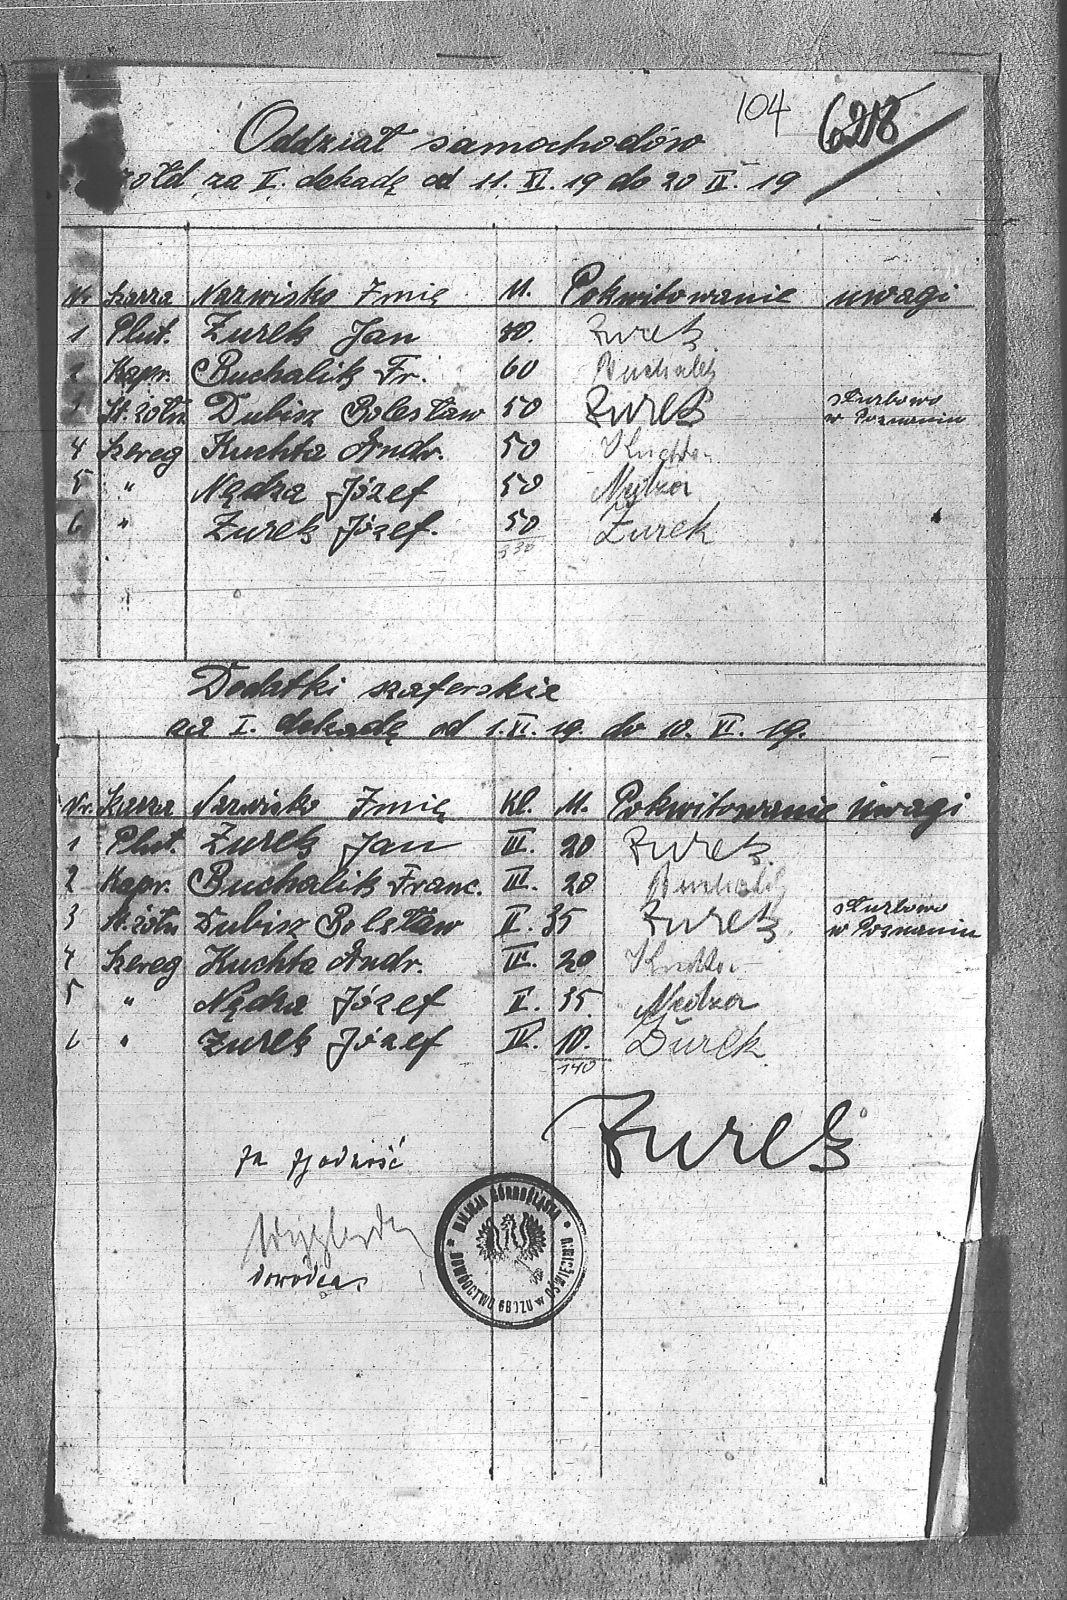 104 6218
Oddział samochodów
żołd za II. dekadę od 11. XI. 19 do 20 XI. 19
Nr Szarża Nazwisko Imię M. Pokwitowanie uwagi
1 Plut. Żurek Jan 80. Żurek
2 Kapr. Buchalik Fr. 60 Buchalik
3 St. żołn Dubisz Bolesław 50 Żurek służbowo
w Poznaniu
4 Szereg Kuchta Andr. 50 Kuchta
5 " Nędza Józef 50 Nędza
6 " Żurek Józef. 50 Żurek
Dodatki szoferskie
za I. dekadę od 1. XI. 19. do 10. XI. 19.
Nr. Szarża Nazwisko Imię Kl. M. Pokwitowanie uwagi
1 Plut. Żurek Jan III. 20 Żurek
2 Kapr. Buchalik Franc. III. 20 Buchalik
3 St. żołn Dubisz Bolesław II. 35 Żurek służbowo
w Poznaniu
4 Szereg Kuchta Andr. III. 20 Kuchta
5 " Nędza Józef II. 35. Nędza
6 " Żurek Józef IV. 10. Żurek
140
Żurek
za zgodność
dowódca
MILICJA GÓRNOŚLĄSKA
DOWÓDCTWO OBOZU w OŚWIĘCIMIU